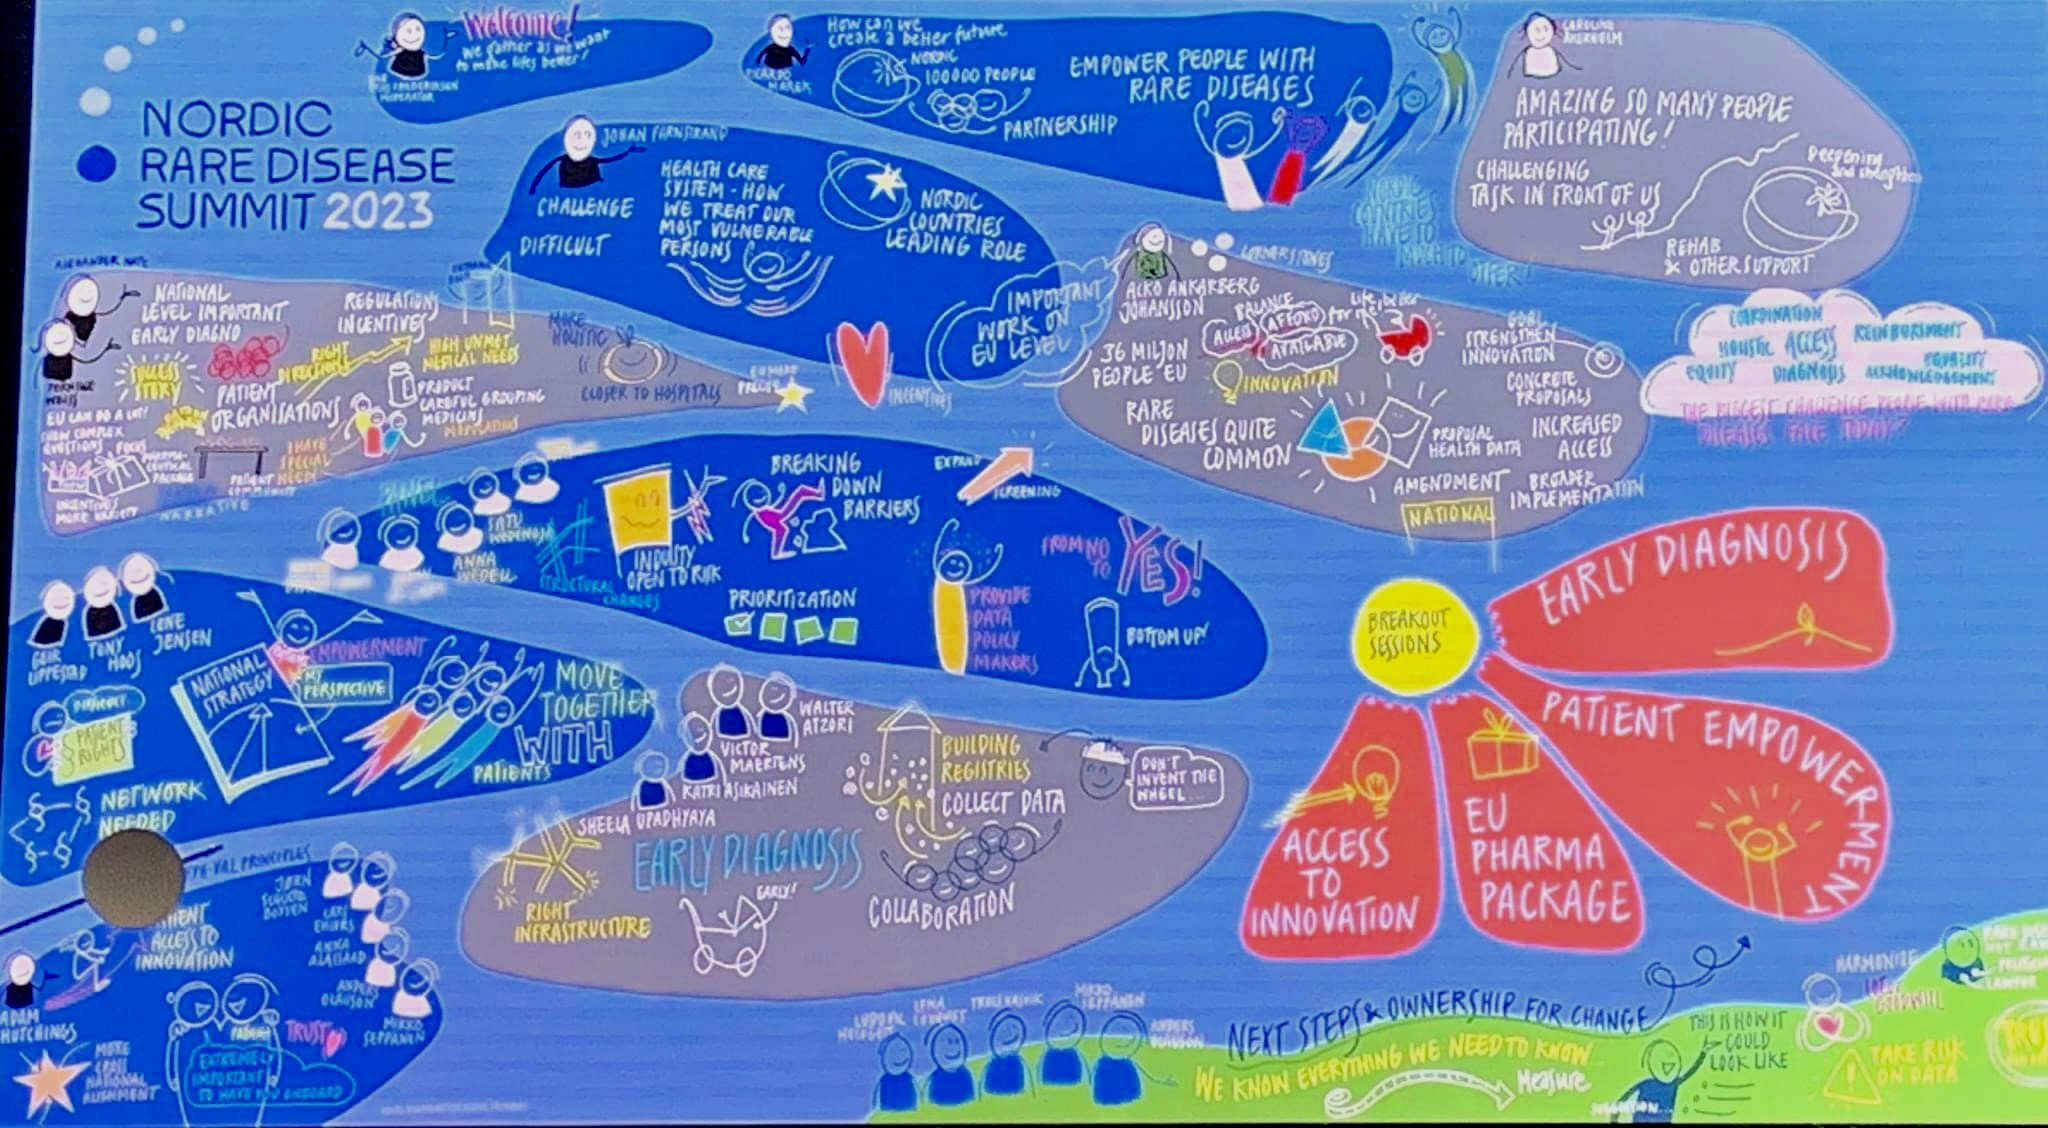 NORDIC
RARE DISEASE
SUMMIT 2023
Welcome!
We gather as we want
to make lifes better!
MODERATOR
How can we
create a better future
NORDIC
100000 PEOPLE
PARTNERSHIP
RICARDO
MAREK
EMPOWER PEOPLE WITH
RARE DISEASES
NORDIC
COUNTRIES
HAVE TO
MUCH TO
OFFER!
CAROLINE
ÅKERHIELM
AMAZING SO MANY PEOPLE
PARTICIPATING!
CHALLENGING
TASK IN FRONT OF US
Deepening
and strengthen
REHAB
& OTHER SUPPORT
CHALLENGE
DIFFICULT
HEALTH CARE
SYSTEM - HOW
WE TREAT OUR
MOST VULNERABLE
PERSONS
NORDIC
COUNTRIES
LEADING ROLE
IMPORTANT
WORK ON
EU LEVEL
INCENTIVES
NATIONAL
LEVEL IMPORTANT
EARLY DIAGNO
REGULATIONS
INCENTIVES
SUCCESS
STORY
RIGHT
DIRECTION
HIGH UNMET
MEDICAL NEEDS
PATIENT
ORGANISATIONS
PRODUCT
CAREFUL GROUPING
MEDICINS
MORE
HOLISTIC
CLOSER TO HOSPITALS
EU CAN DO A LOT!
SHOW COMPLEX
QUESTIONS
FOCUS
PHARMA-
CEUTICAL
PACKAGE
INCENTIVES
MORE VARIETY
NARRATIVE
I HAVE
SPECIAL
NEEDS
PATIENT
COMMUNITY
CORNERSTONES
ACKO ANKARBERG
JOHANSSON
BALANCE
ACCESS
AFFORD
AVAILABLE
36 MILJON
PEOPLE EU
INNOVATION
RARE
DISEASES QUITE
COMMON
GOAL
STRENGTHEN
INNOVATION
CONCRETE
PROPOSALS
INCREASED
ACCESS
PROPOSAL
HEALTH DATA
AMENDMENT
BROADER
IMPLEMENTATION
NATIONAL
COORDINATION
HOLISTIC ACCESS
REINBURSMENT
EQUITY
DIAGNOSIS
EQUALITY
ACKNOWLEDGEMENT
THE BIGGEST CHALLENGE PEOPLE WITH RARE
DISEASES FACE TODAY?
PANEL
SATU
WEDENOJA
ANNA
WEDELL
STRUCTURAL
CHANGES
INDUSTY
OPEN TO RISK
BREAKING
DOWN
BARRIERS
EXPAND
SCREENING
PRIORITIZATION
PROVIDE
DATA
POLICY
MAKORS
FROM NO
TO
YES!
BOTTOM UP!
GEIR
LIPPESTAD
TONY
HOOS
LENE
JENSEN
DIFFICULT..
PATIENT
RIGHTS
NATIONAL
STRATEGY
EMPOWERMENT
MY
PERSPECTIVE
MOVE
TOGETHER
WITH
PATIENTS
NETWORK
NEEDED
WALTER
ATZORI
VICTOR
MAERTENS
KATRI ASIKAINEN
SHEELA UPADHYAYA
BUILDING
REGISTRIES
COLLECT DATA
DON'T
INVENT THE
WHEEL...
EARLY DIAGNOSIS
EARLY!
RIGHT
INFRASTRUCTURE
COLLABORATION
BREAKOUT
SESSIONS
EARLY DIAGNOSIS
PATIENT EMPOWERMENT
EU
PHARMA
PACKAGE
ACCESS
TO
INNOVATION
PRINCIPLES
ACCESS TO
INNOVATION
ANDERS
OLAUSON
MIKKO
SEPPANEN
ADAM
HUTCHINGS
MORE
CROSS
NATIONAL
ALIGNMENT
TRUST
EXTREMELY
IMPORTANT
TO HAVE YOU ONBOARD
MIKKO
SEPPANEN
ANDERS
OLAUSON
NEXT STEPS & OWNERSHIP FOR CHANGE
WE KNOW EVERYTHING WE NEED TO KNOW
Measure
THIS IS HOW IT
COULD
LOOK LIKE
HARMONIZE
TAKE RISK
ON DATA